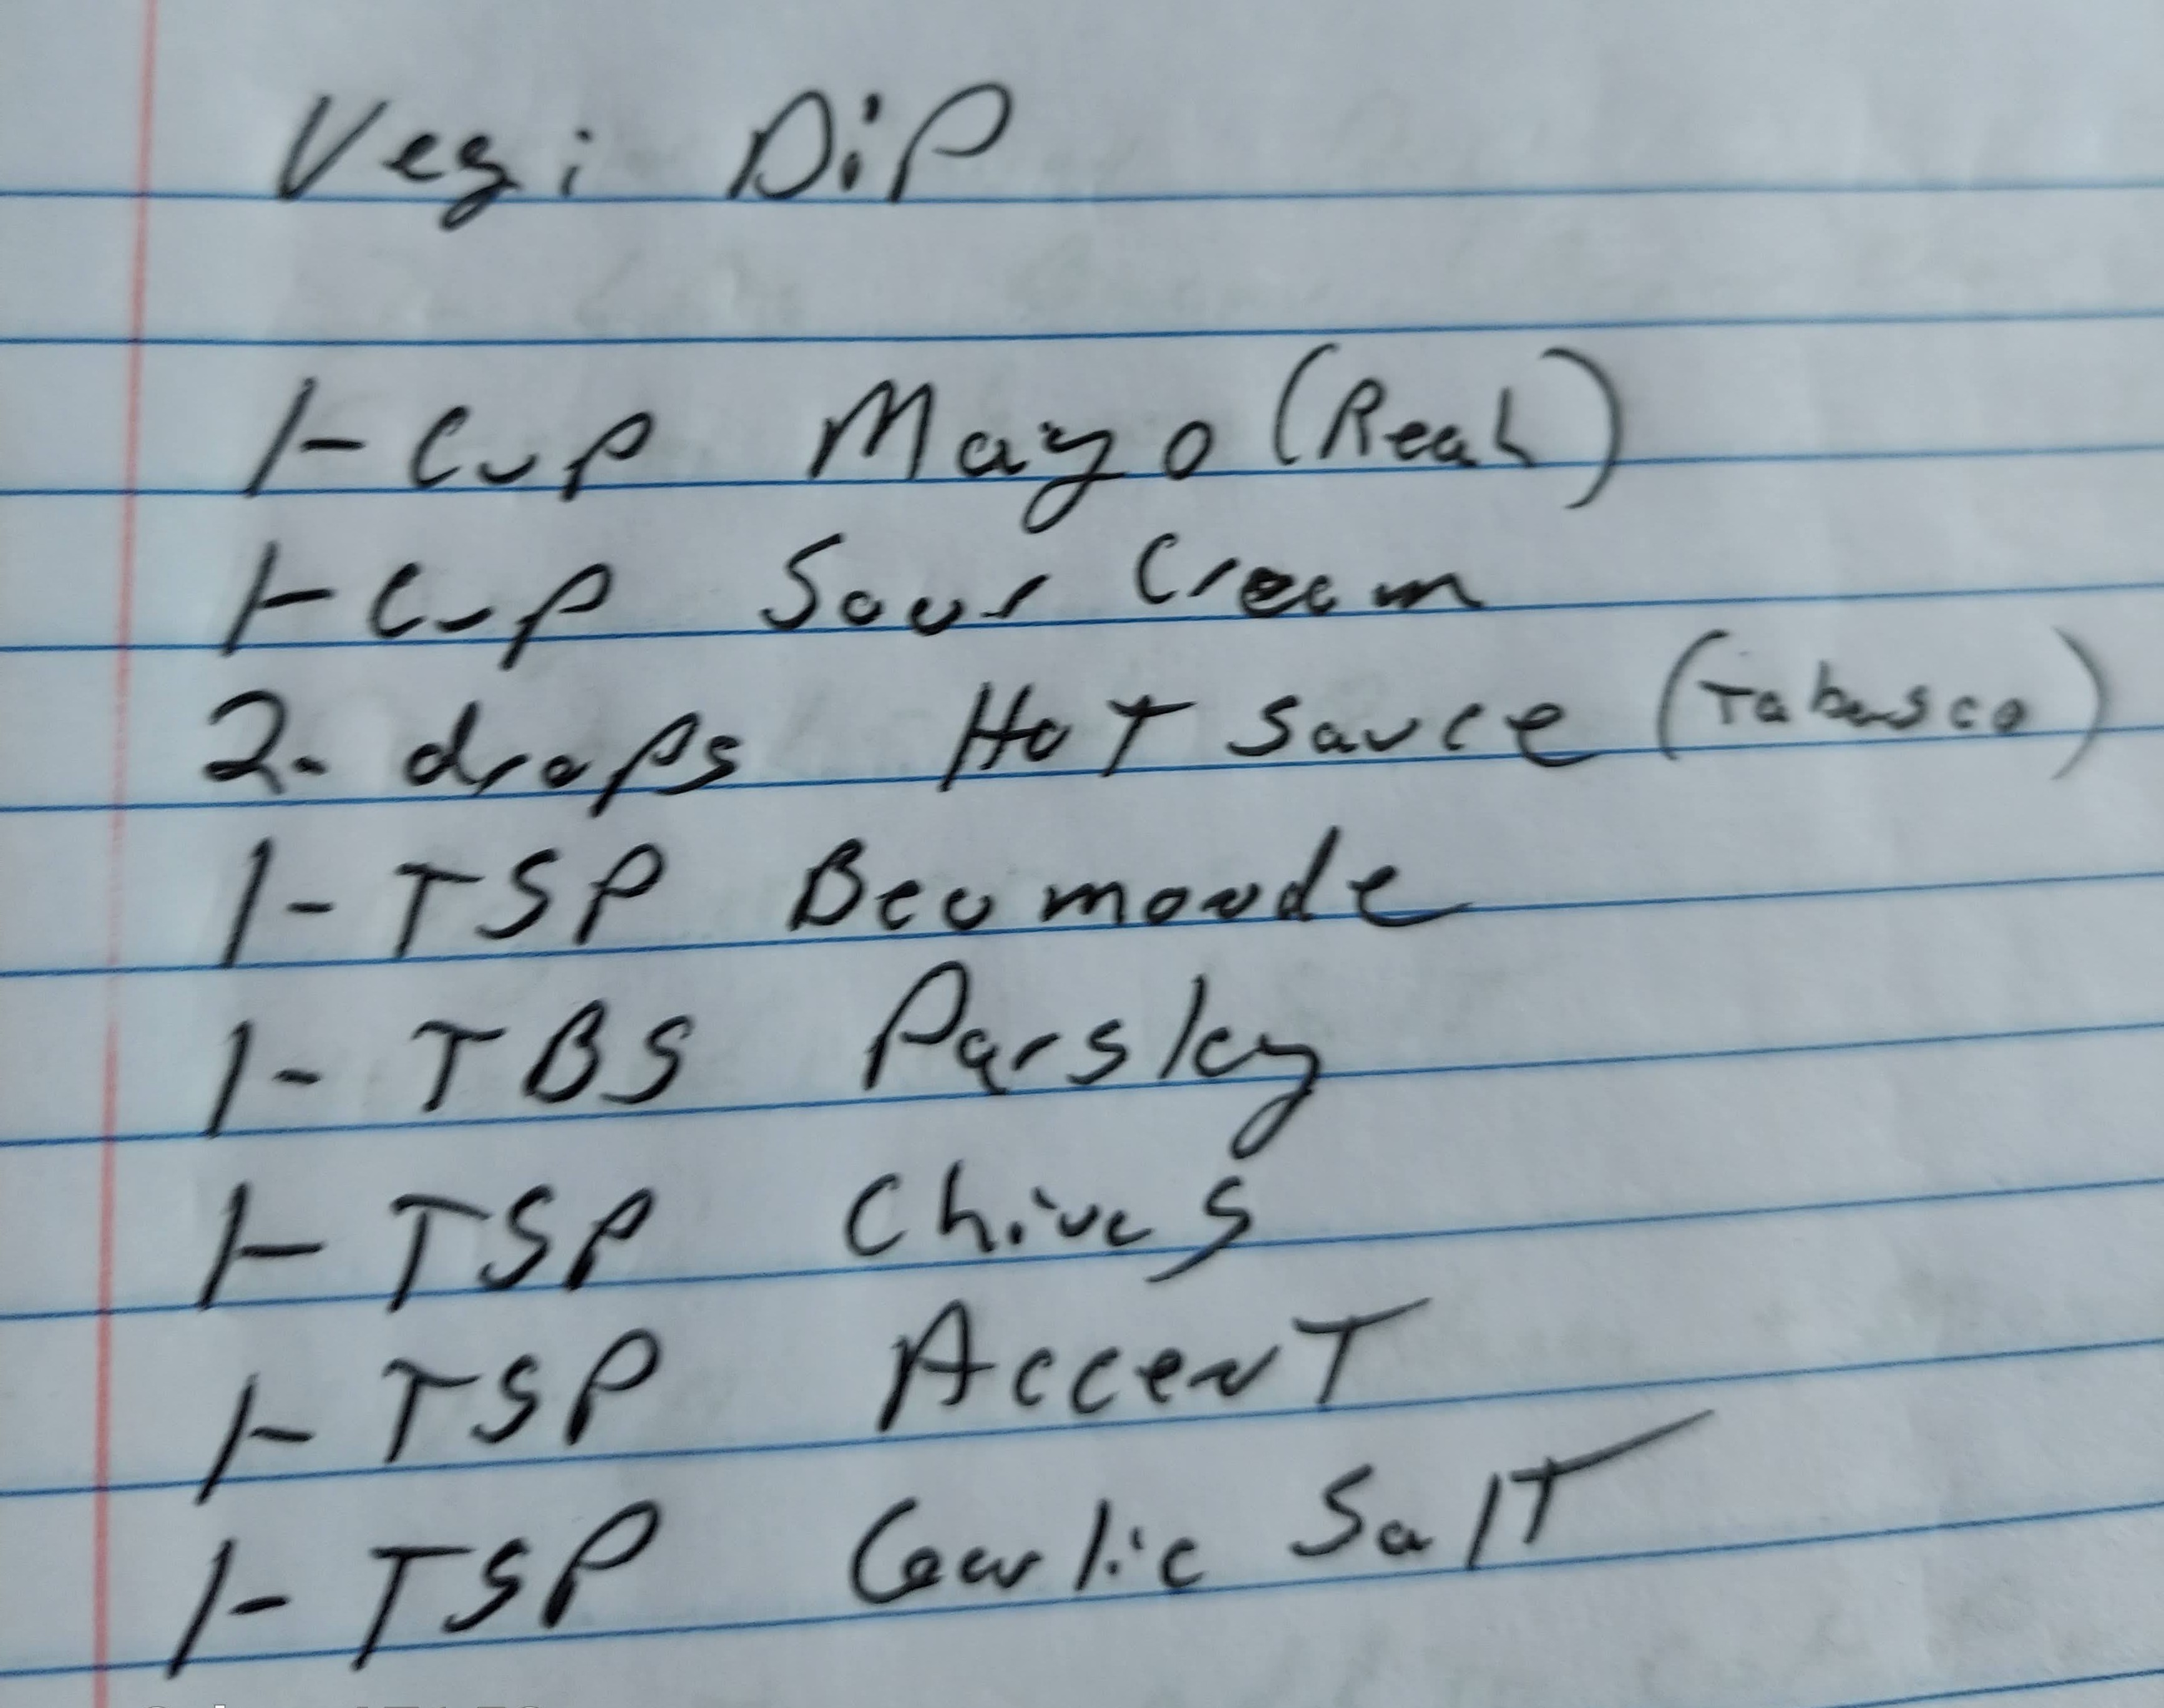 Vegi DiP
1- Cup Mayo (Real)
1- Cup Sour Cream
2- drops HoT Sauce (Tabasco)
1- TSP Beumonde
1- TBS Parsley
1- TSP Chives
1- TSP AccenT
1- TSP Garlic SalT